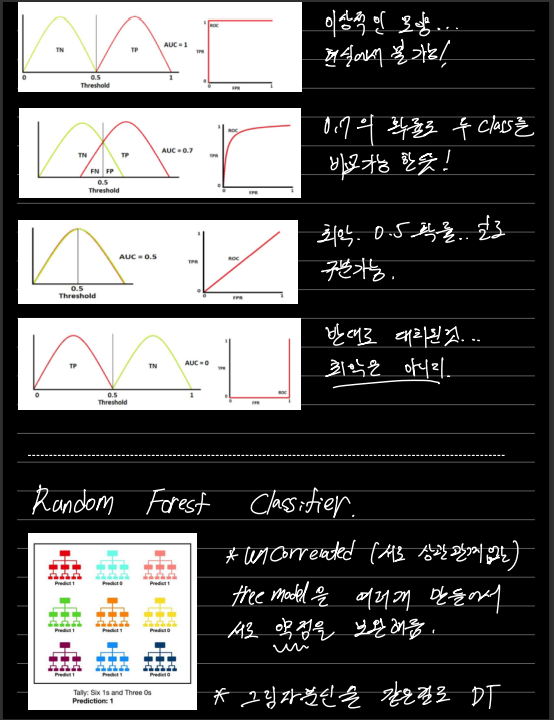 TN TP AUC = 1
0 0.5 1
Threshold
1 ROC
TPR
0 FPR 1
이상적인 모양...
현실에서 불가능!
TN TP AUC = 0.7
FN FP
0.5
Threshold
1 ROC
TPR
0 FPR 1
0.7의 확률로 두 class를
비교가능 한뜻!
AUC = 0.5
0.5
Threshold
1
TPR ROC
0 FPR 1
최악. 0.5 확률..
구분가능.
TP TN AUC = 0
0 0.5 1
Threshold
1
TPR
ROC
0 FPR 1
반대로 된것...
최악은 아니리.
Random Forest Classifier.
Predict 1 Predict 0 Predict 1
Predict 1 Predict 1 Predict 0
Predict 1 Predict 1 Predict 0
Tally: Six 1s and Three 0s
Prediction: 1
* unCorrelated (서로 상관관계없는)
tree model을 여러개 만들어서
서로 약점을 보완해줌.
* DT